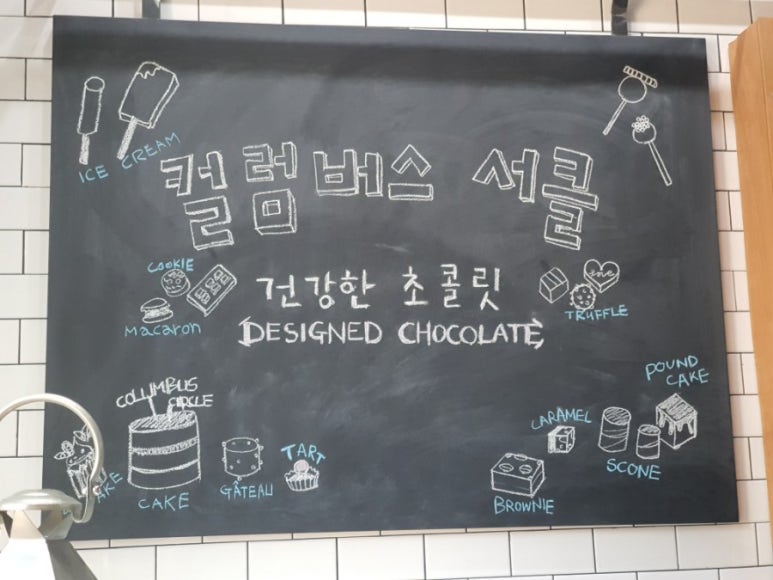 ICE CREAM
컬럼버스 서클
COOKIE
Macaron
건강한 초콜릿
DESIGNED CHOCOLATE
love
TRUFFLE
COLUMBUS
CIRCLE
CAKE
GÂTEAU
TART
POUND
CAKE
CARAMEL
SCONE
BROWNIE